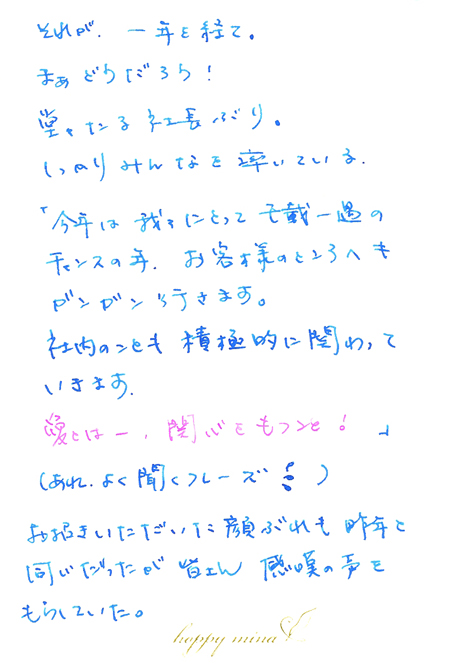 それが、一年を経て。
まぁどうだろう!
堂々たる社長ぶり。
しっかりみんなを率いている。
「今年は我々にとって千載一遇の
チャンスの年。お客様のところへも
ガンガン行きます。
社内のことも積極的に関わって
いきます。
愛とはー、関心をもつこと!」
(あれ、よく聞くフレーズ)
お招きいただいた顔ぶれも昨年と
同じだったが皆さん感嘆の声を
もらしていた。
happy mina